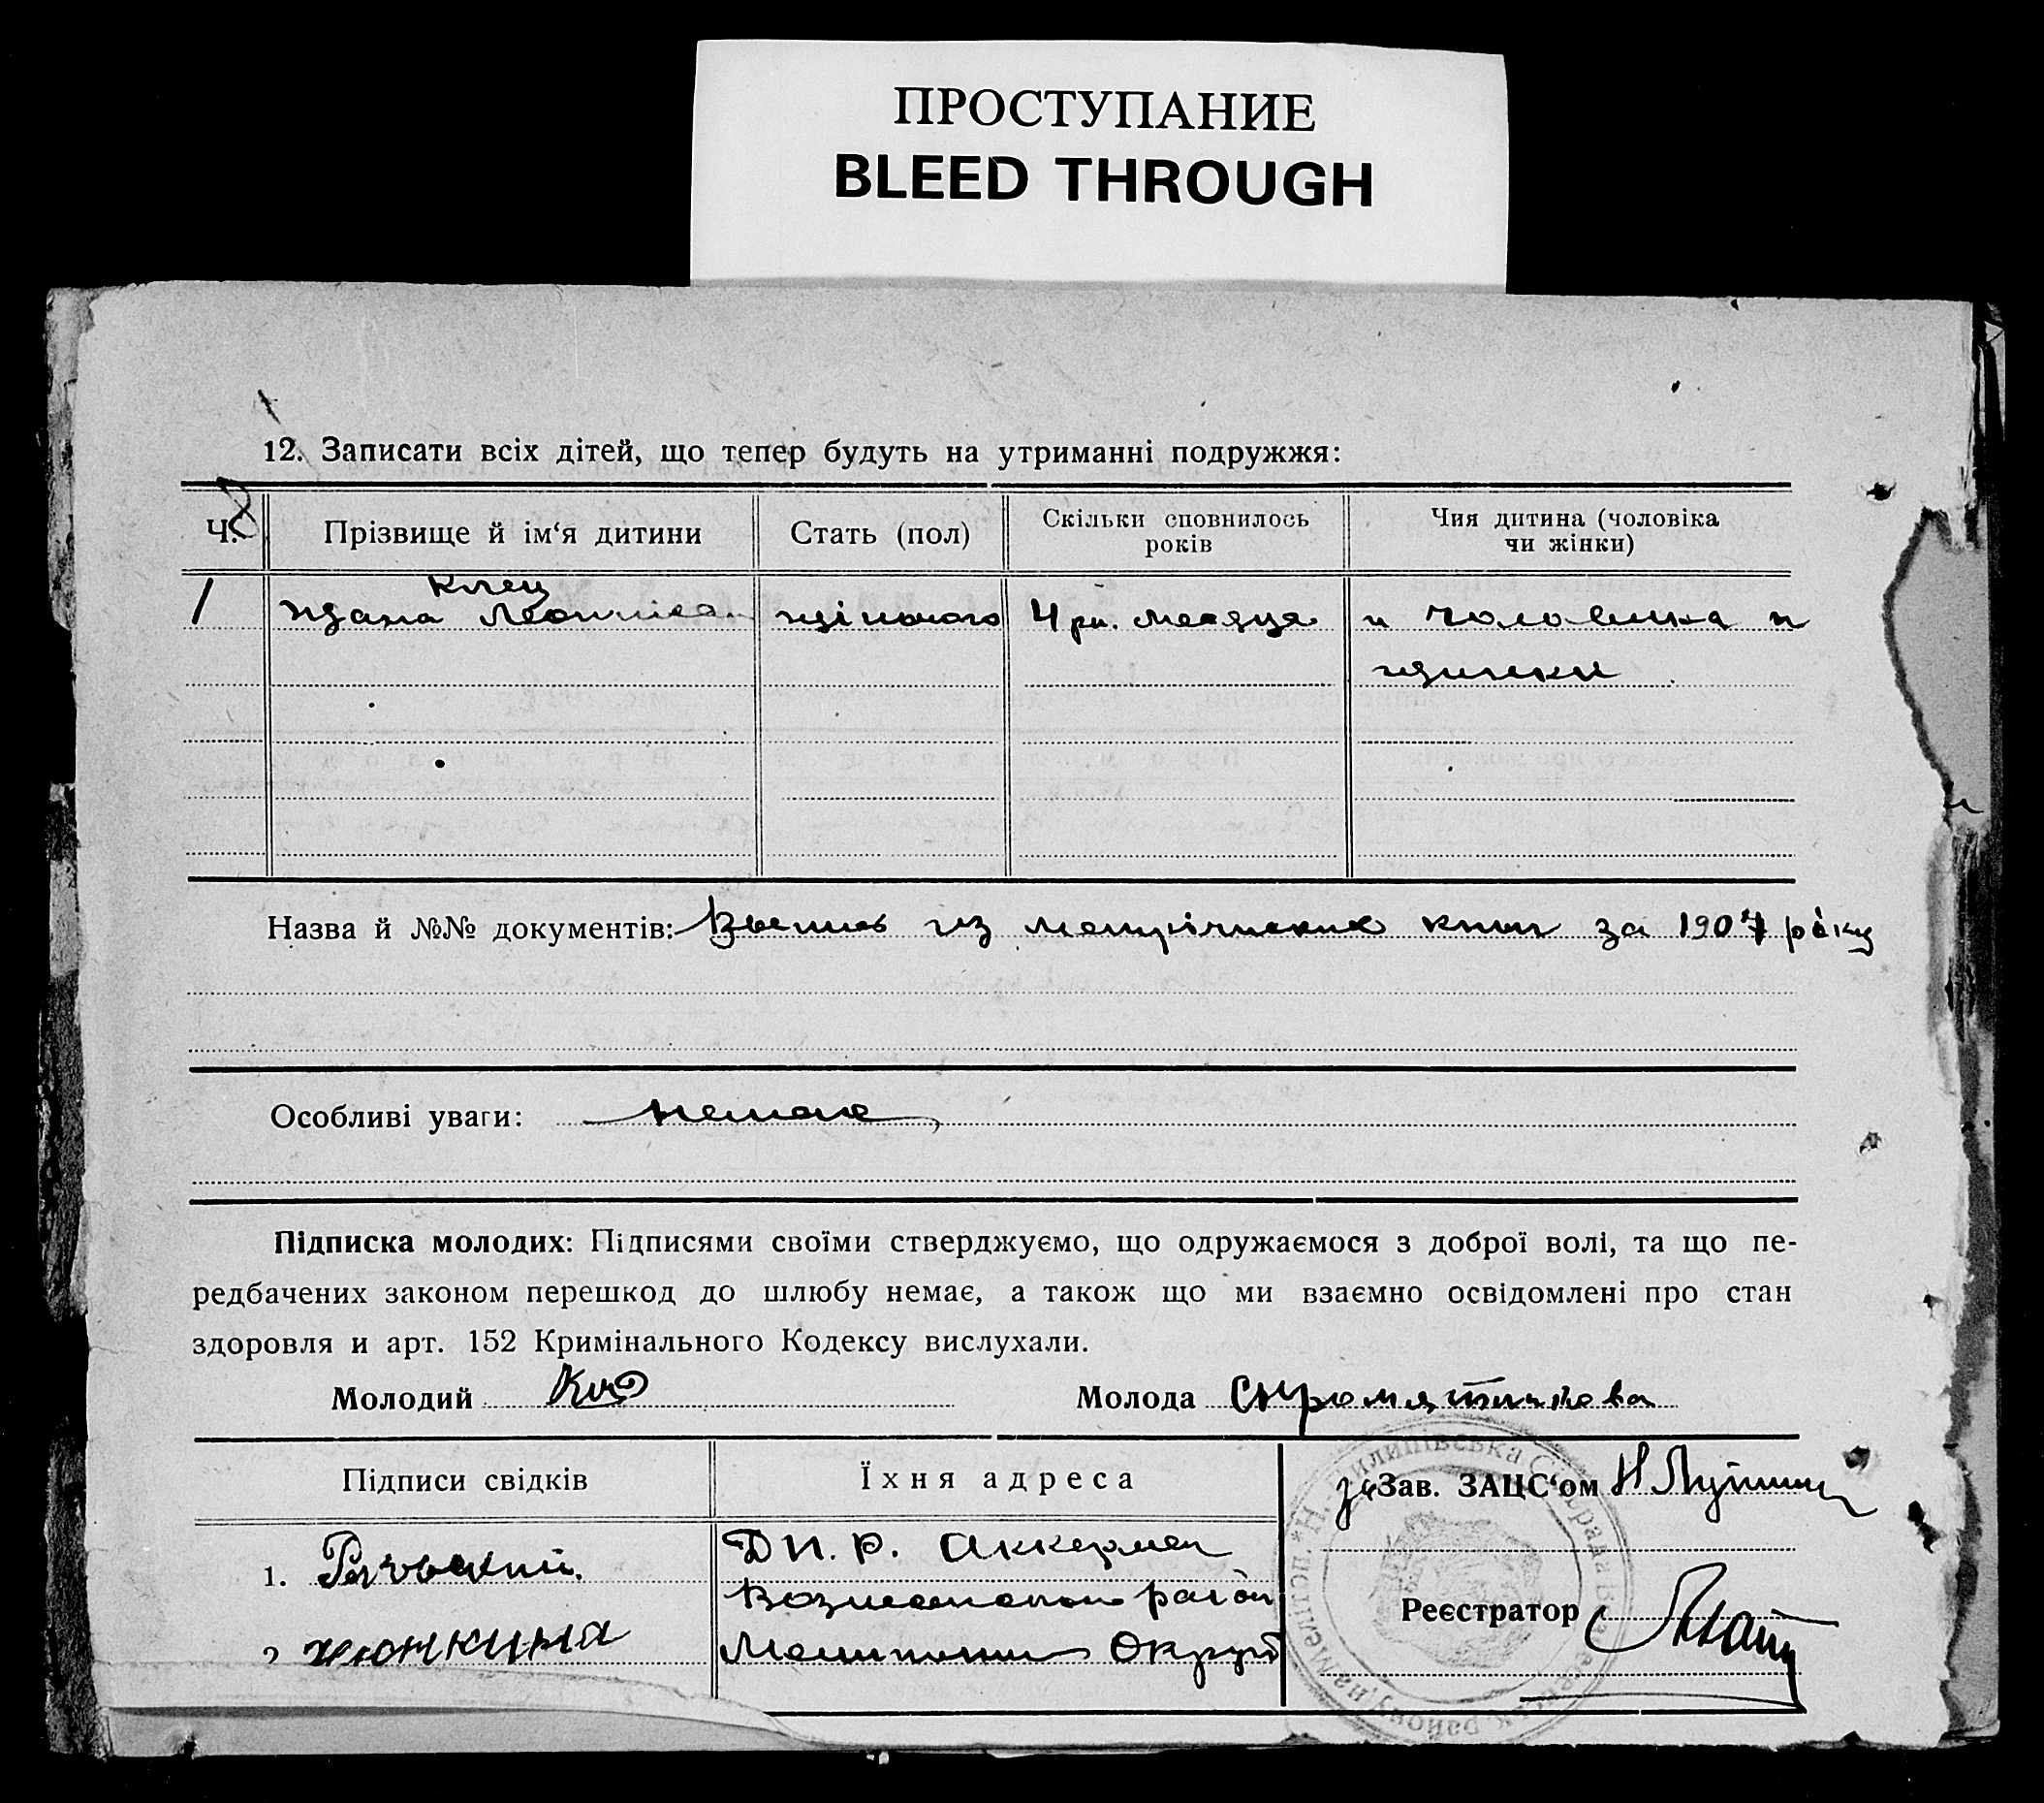 ПРОСТУПАНИЕ
BLEED THROUGH
12. Записати всіх дітей, що тепер будуть на утриманні подружжя:
Ч.
Прізвище й ім‘я дитини
Стать (пол)
Скільки сповнилось
років
Чия дитина (чоловіка
чи жінки)
1
жіночого
4 месяца
и чоловика и
жинки
Назва й №№ документів: Выпись из метрических книг за 1907 року
Особливі уваги: немае
Підписка молодих: Підписями своїми стверджуємо, що одружаємося з доброї волі, та що пе-
редбачених законом перешкод до шлюбу немає, а також що ми взаємно освідомлені про стан
здоровля и арт. 152 Кримінального Кодексу вислухали.
Молодий
Молода Сыромятникова
Підписи свідків
Їхня адреса
за Зав. ЗАЦС‘ом
1.
Аккермен
район
2
Округ
Реєстратор